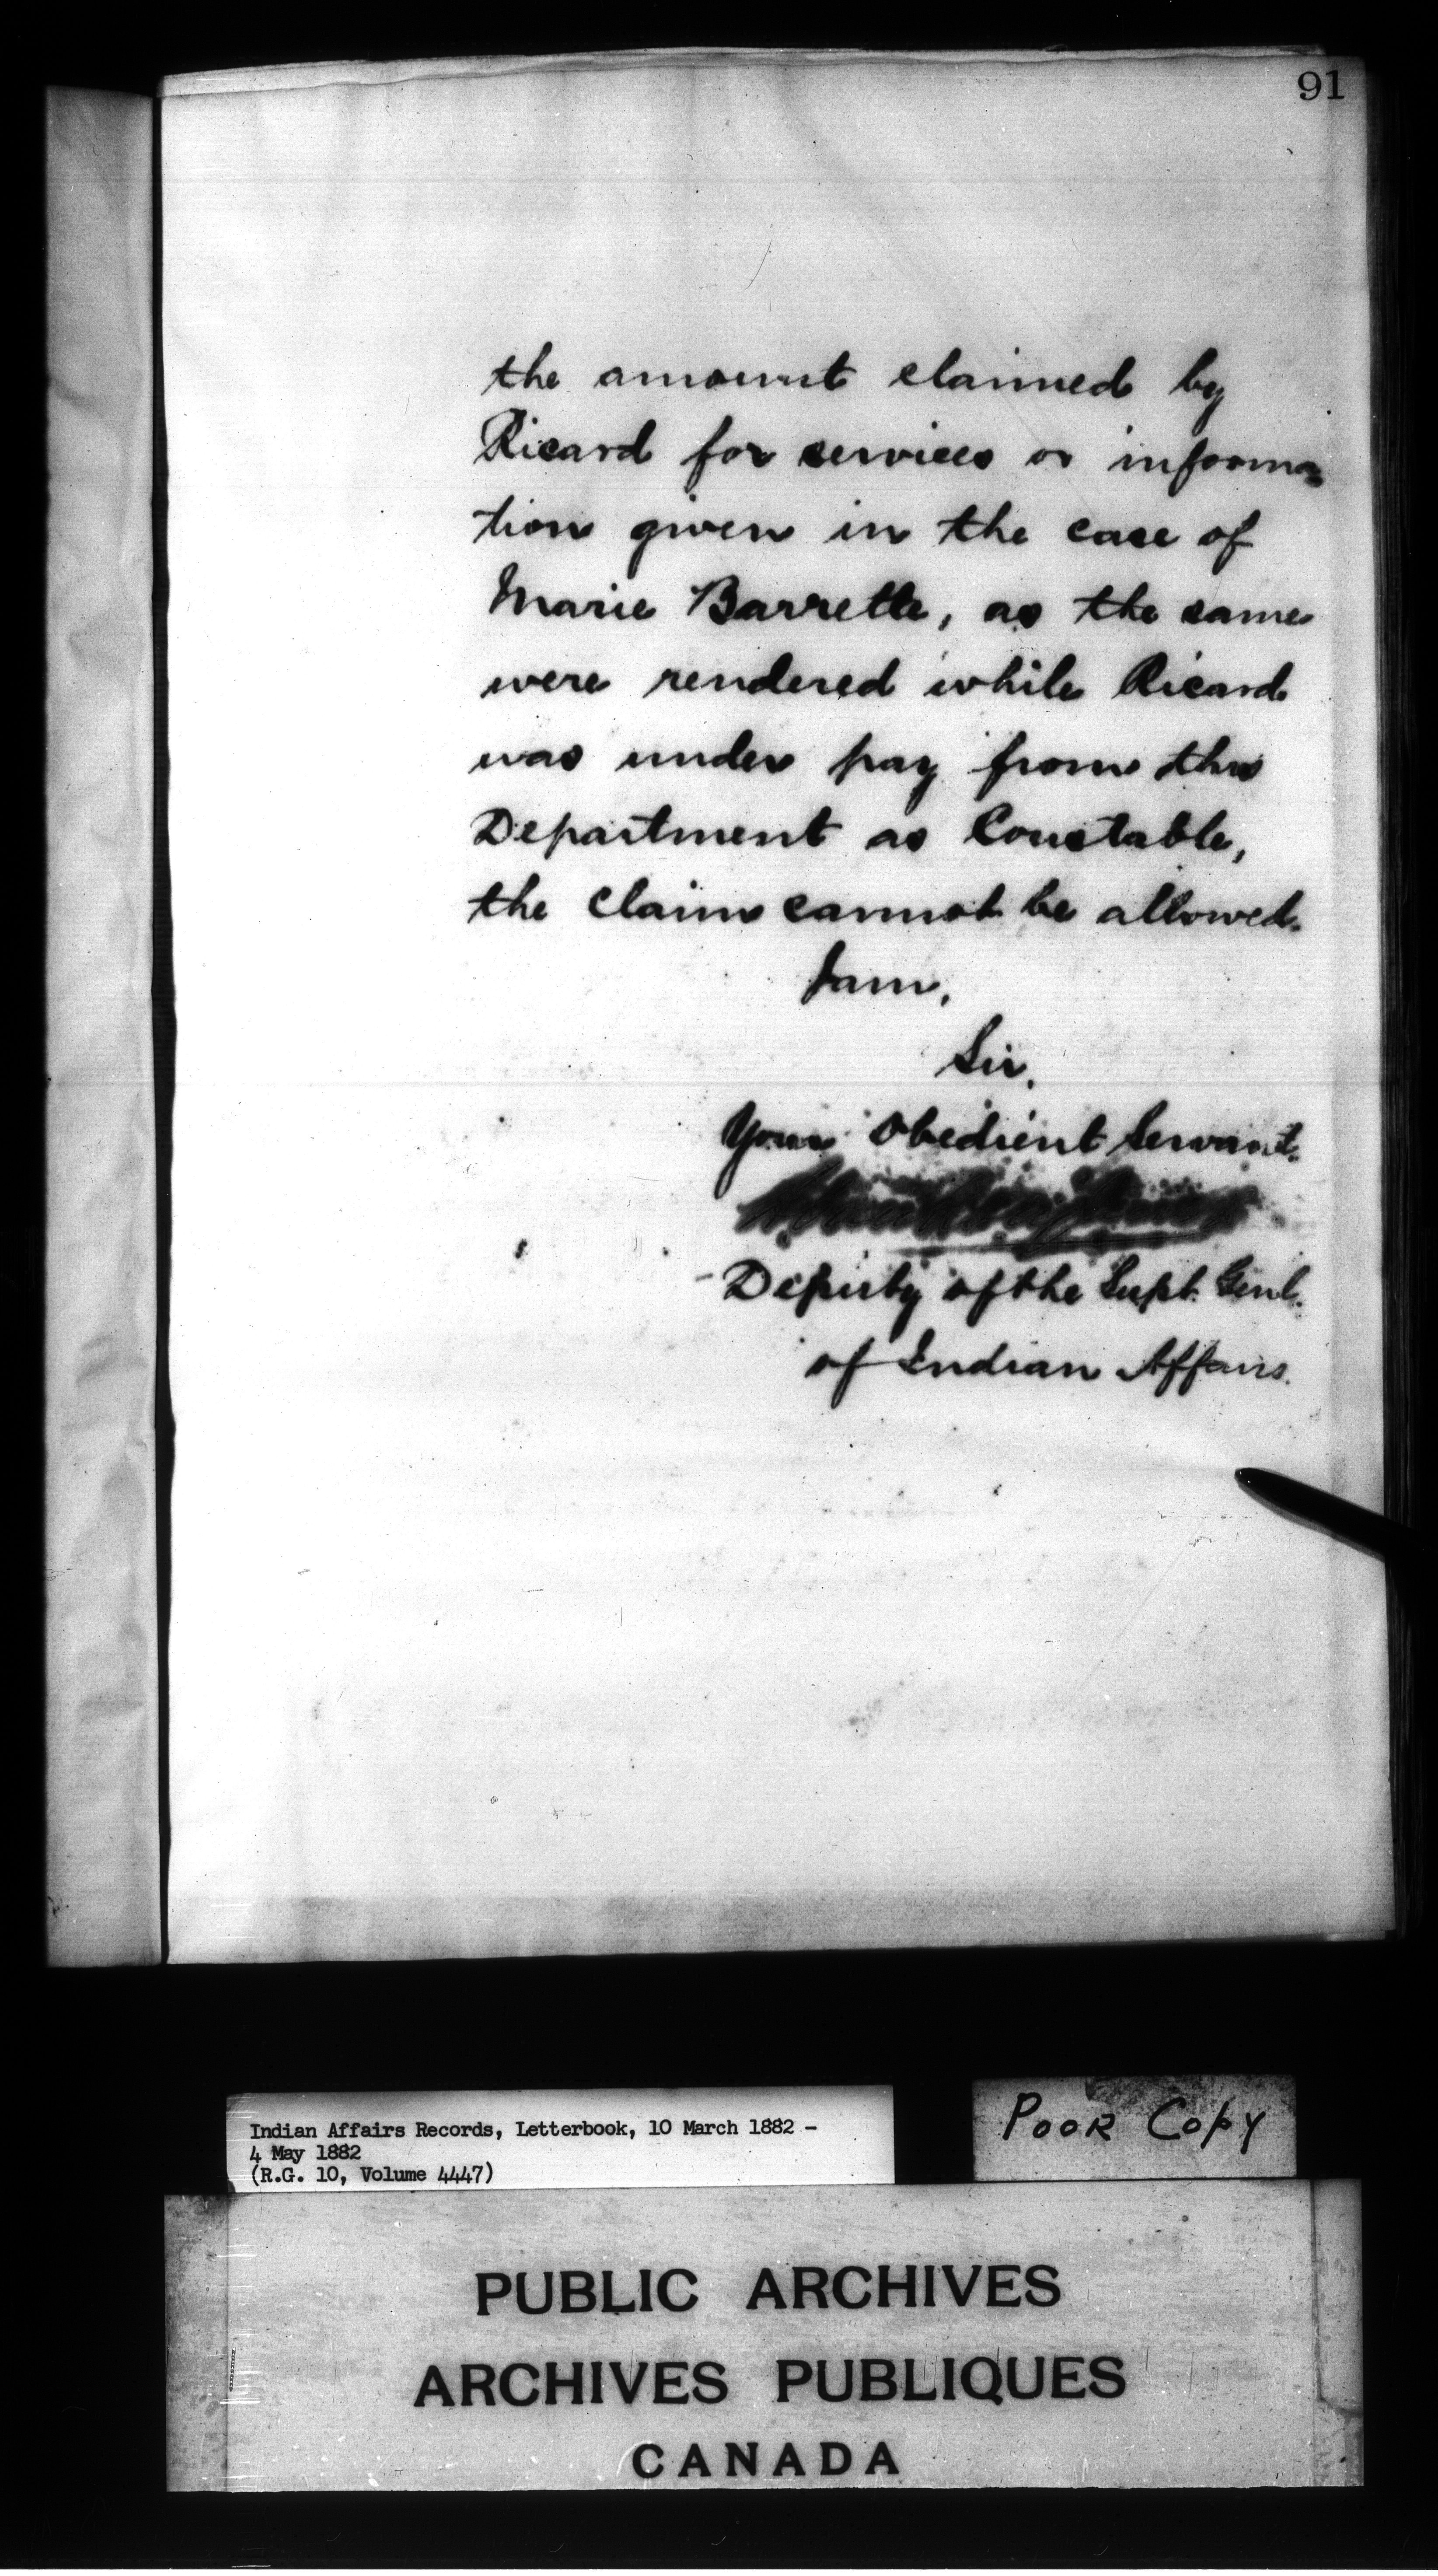 91
the amount claimed by
Ricard for services or informa-
tion given in the case of
Marie Barrette, as the same
were rendered while Ricard
was under pay from this
Department as Constable,
the claim cannot be allowed.
I am,
Sir,
Your Obedient Servant.
Deputy of the Supt. Genl.
of Indian Affairs.
Indian Affairs Records, Letterbook, 10 March 1882 -
4 May 1882
(R.G. 10, Volume 4447)
POOR COPY
PUBLIC ARCHIVES
ARCHIVES PUBLIQUES
CANADA